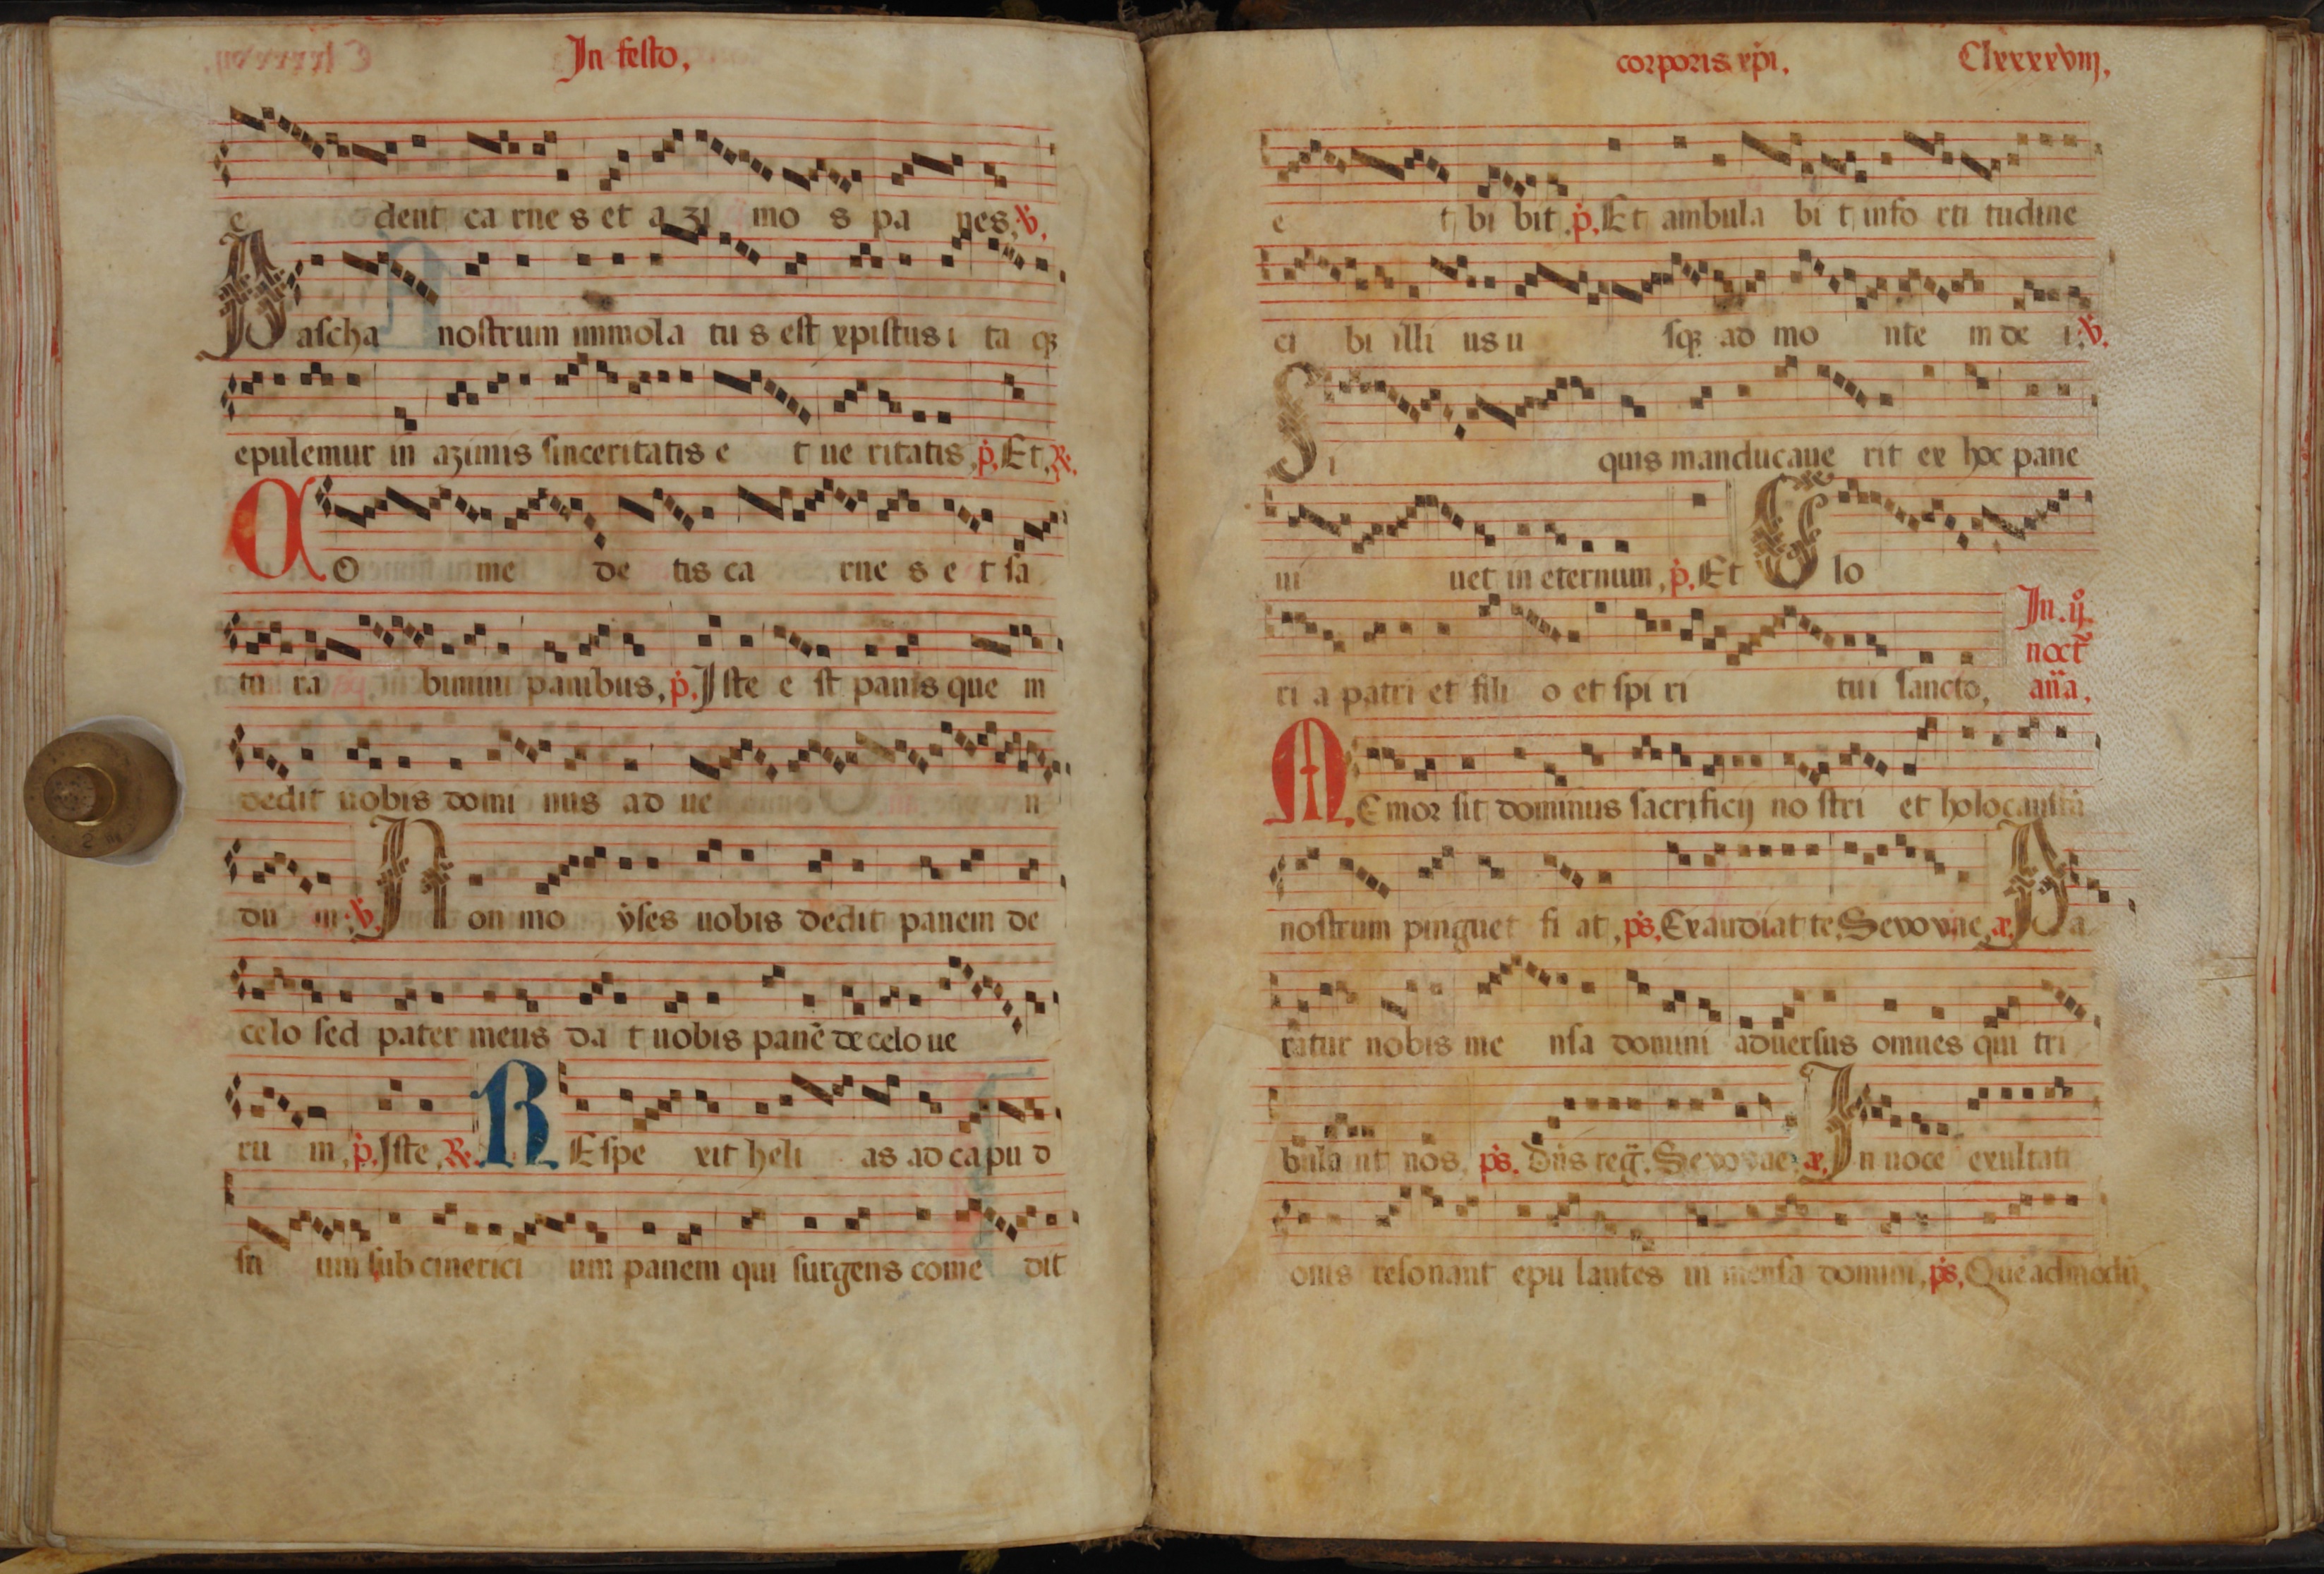 In festo,
e dent ca rne s et a zi mo s pa nes, ꝟ.
Pascha nostrum immola tu s est xpistus i ta qȝ
epulemur in azimis sinceritatis e t ue ritatis, p̄. Et, ℟.
CO me de tis ca rne s e t sa
tu ra bimini panibus, p̄. Iste e st panis que m
dedit uobis domi nus ad ue n
du m: ꝟ. Non mo yses uobis dedit panem de
celo sed pater meus da t uobis panē de celo ue
ru m, p̄. Iste, ℟. REspe xit heli as ad capu d
su um sub cinerici um panem qui surgens come dit
corporis xp̄i, Clxxxxviij,
e t bi bit, p̄. Et ambula bi t info rti tudine
ci bi illi us u sqȝ ad mo nte m de i: ꝟ.
Si quis manducaue rit ex hoc pane
ui uet in eternum, p̄. Et Glo
ri a patri et fili o et spi ri tui sancto,
In. ij.
noct̄
an̄a,
MEmor sit dominus sacrificij no stri et holocaustū
nostrum pingue fi at, p̄s, Exaudiat te, Seuouae, a. Pa
ratur nobis me nsa domini aduersus omnes qui tri
bula nt nos, p̄s. Dn̄s reḡ. Seuouae, a. In uoce exultati
onis resonant epu lantes in mensa domini, p̄s, Quēadmodū,